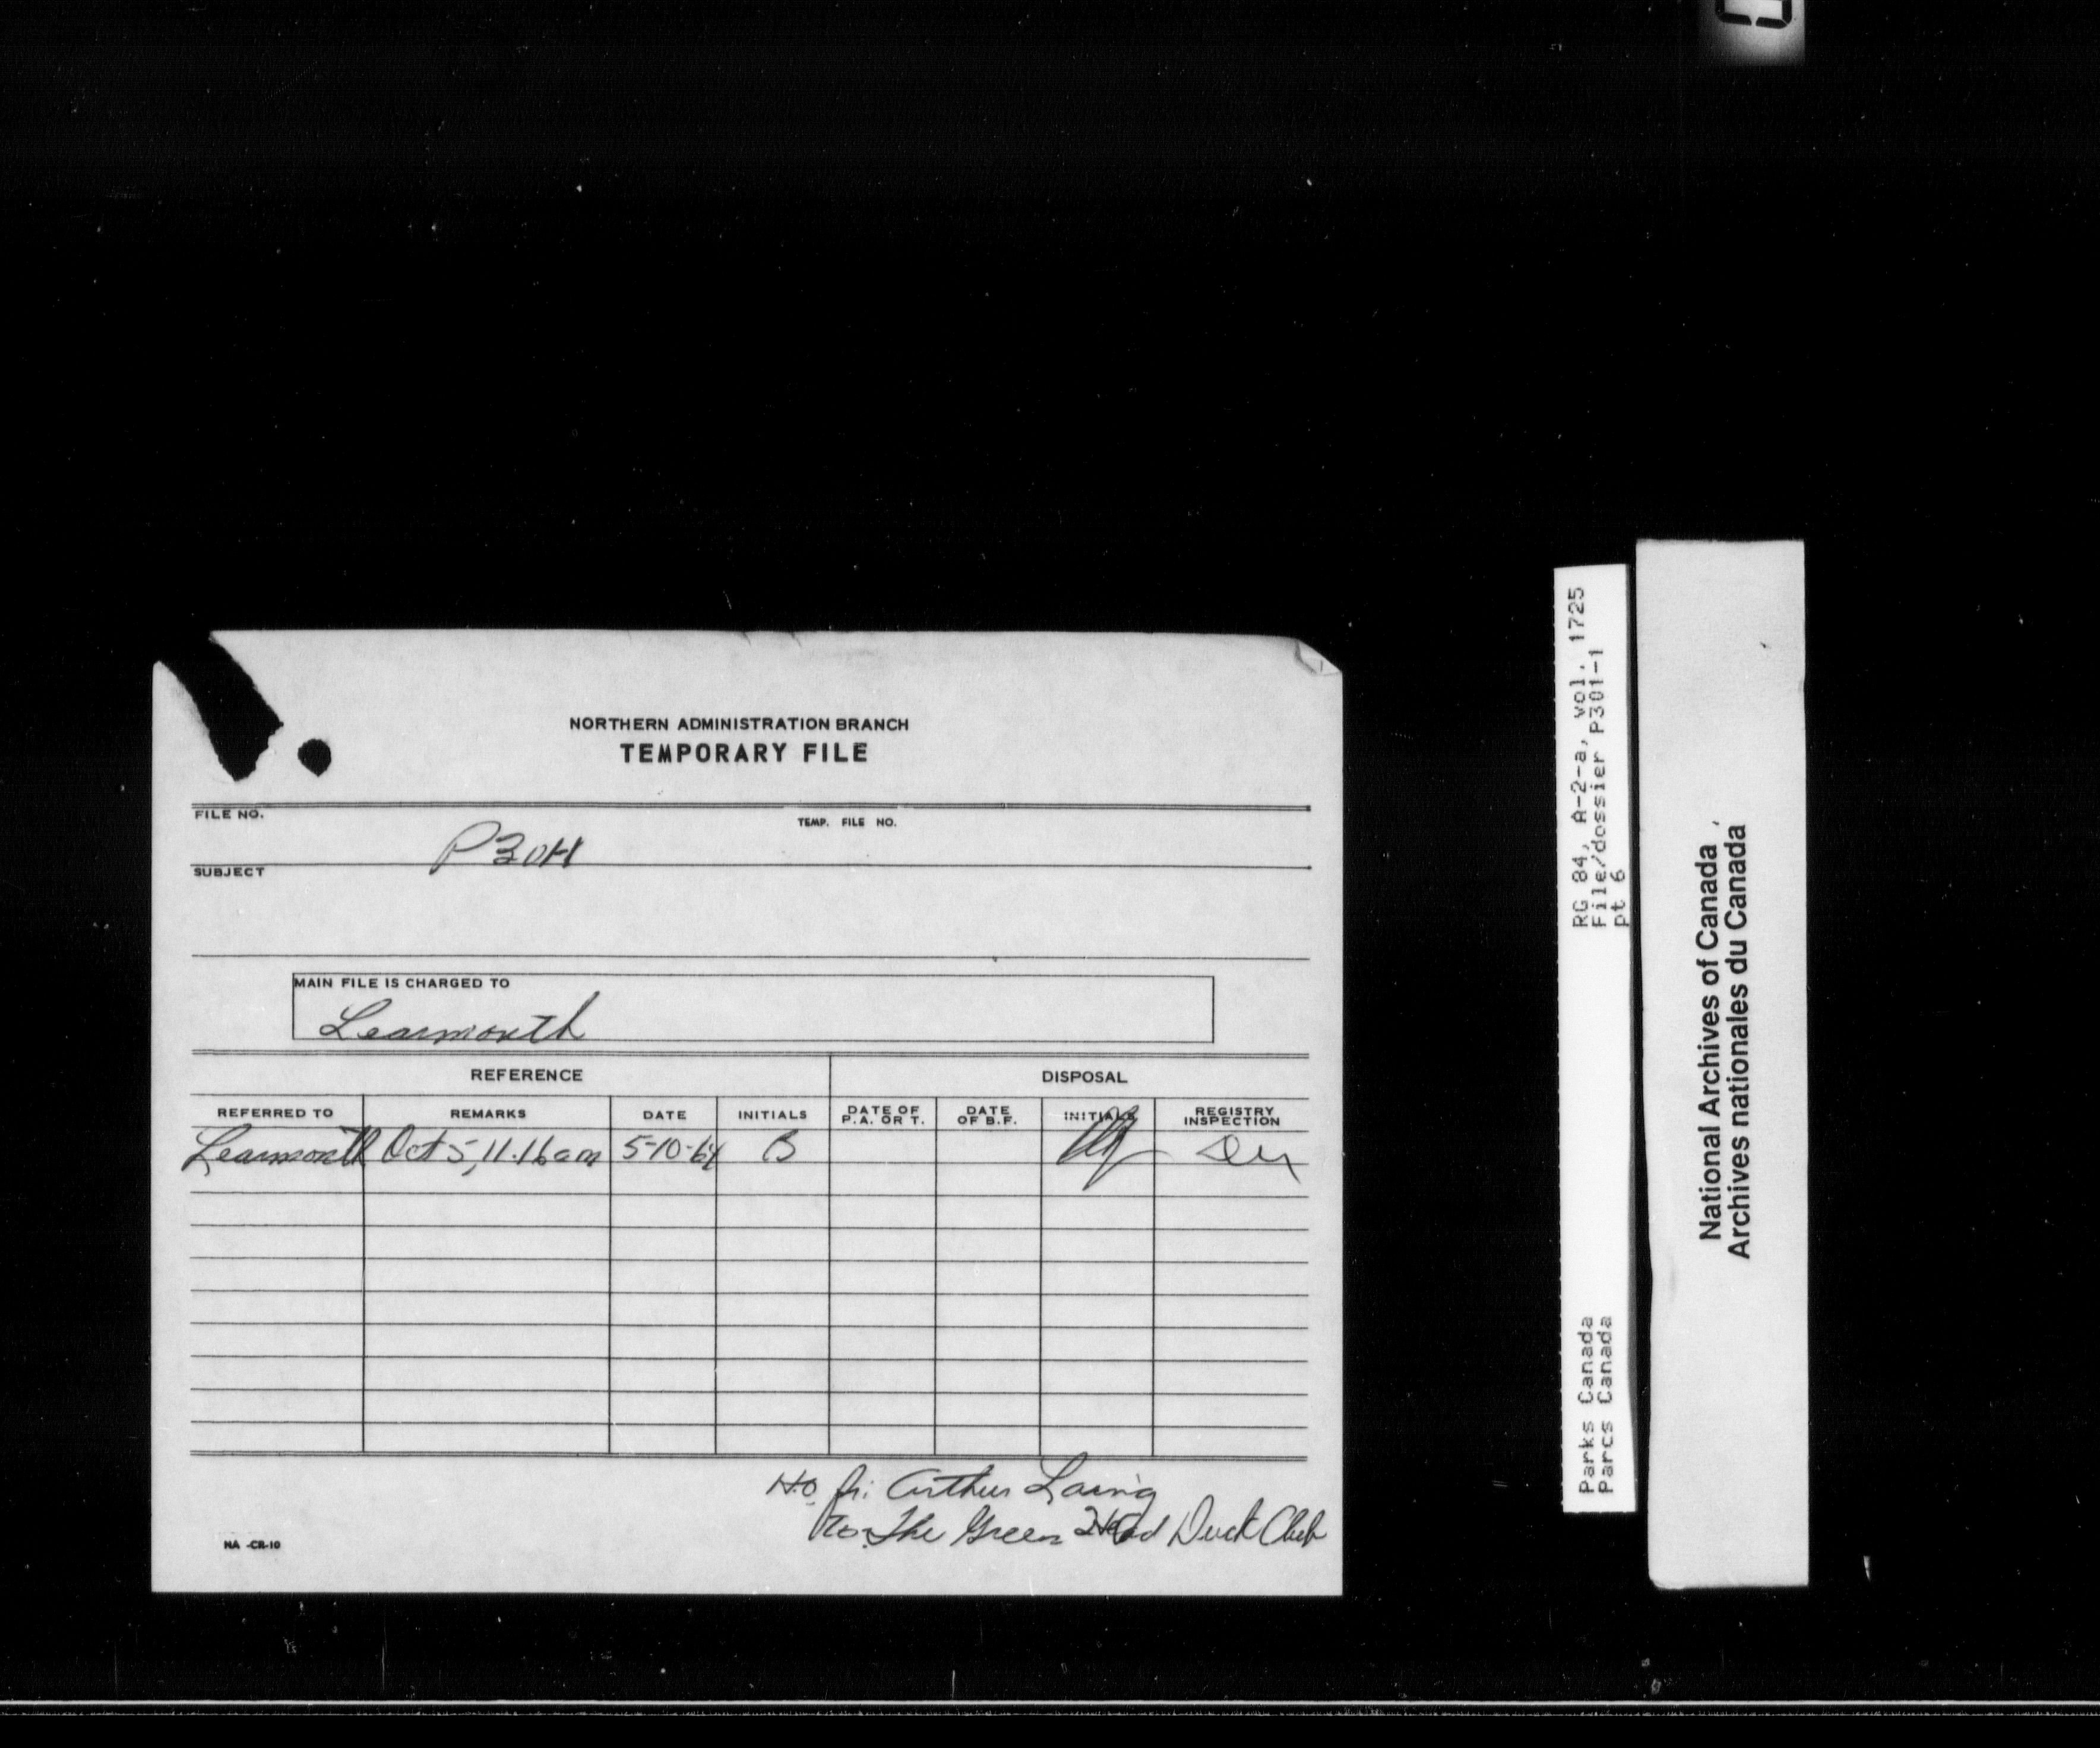 NORTHERN ADMINISTRATION BRANCH
TEMPORARY FILE
FILE NO. TEMP. FILE NO.
P301-1
SUBJECT
MAIN FILE IS CHARGED TO
Learmonth
REFERENCE DISPOSAL
REFERRED TO REMARKS DATE INITIALS DATE OF P.A. OR T. DATE OF B.F. INITIALS REGISTRY INSPECTION
Learmonth Oct 5, 11.16am 5-10-64 B
H.O. fr: Arthur Laing
to: The Green Head Duck Club
NA -CR-10
RG 84, A-2-a, vol. 1725
File/dossier P301-1
pt 6
Parks Canada
Parcs Canada
National Archives of Canada
Archives nationales du Canada